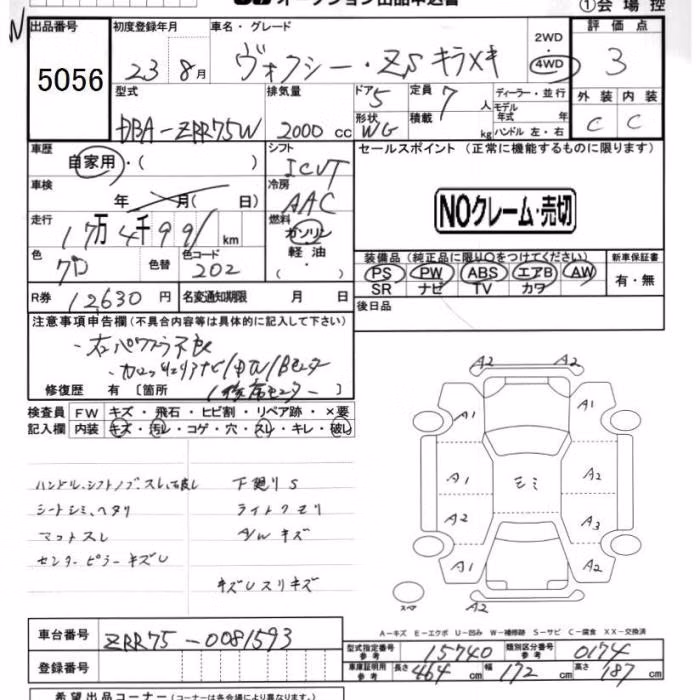 オークション出品申込書
①会場控
出品番号 初度登録年月 車名・グレード 評価点
5056 23年 8月 ヴォクシー・ZS キラメキ 2WD 4WD 3
型式 排気量 ドア 5 定員 7人 ディーラー・並行 外装 内装
DBA-ZRR75W 2000cc 形状 WG 積載 kg モデル年式 年 ハンドル 左・右 C C
車歴 シフト セールスポイント (正常に機能するものに限ります)
自家用・( ) ICVT
車検 冷房
年 月( 日) AAC NOクレーム・売切
走行 燃料
17万4千991km ガソリン
色 色替 色コード 軽油 装備品 (純正品に限り○をつけてください) 新車保証書
クロ 202 ・( ) PS PW ABS エアB AW 有・無
SR ナビ TV カワ
R券 12630円 名変通知期限 月 日 後日品
注意事項申告欄 (不具合内容等は具体的に記入して下さい)
・右パワスラ不良
修復歴 有 [箇所
検査員 FW キズ・飛石・ヒビ割・リペア跡・×要
記入欄 内装 キズ・汚レ・コゲ・穴・スレ・キレ・破レ
ハンドル、シフトノブ、スレ 下廻りS
シートシミ、ヘタリ ライトクモリ
マットスレ A/Wキズ
センターピラーキズU
キズUスリキズ
A2 A2
A1 A1
A1 シミ A2
A2 A3
A1 A2
スペア A2
A-キズ E-エクボ U-凹み W-補修跡 S-サビ C-腐食 XX-交換済
車台番号 ZRR75-0081593
型式指定番号 参考 15740 類別区分番号 参考 0174
登録番号 車庫証明用 参考 長さ 464cm 幅 172cm 高さ 187cm
希望出品コーナー (コーナーは各会場により異なります。)